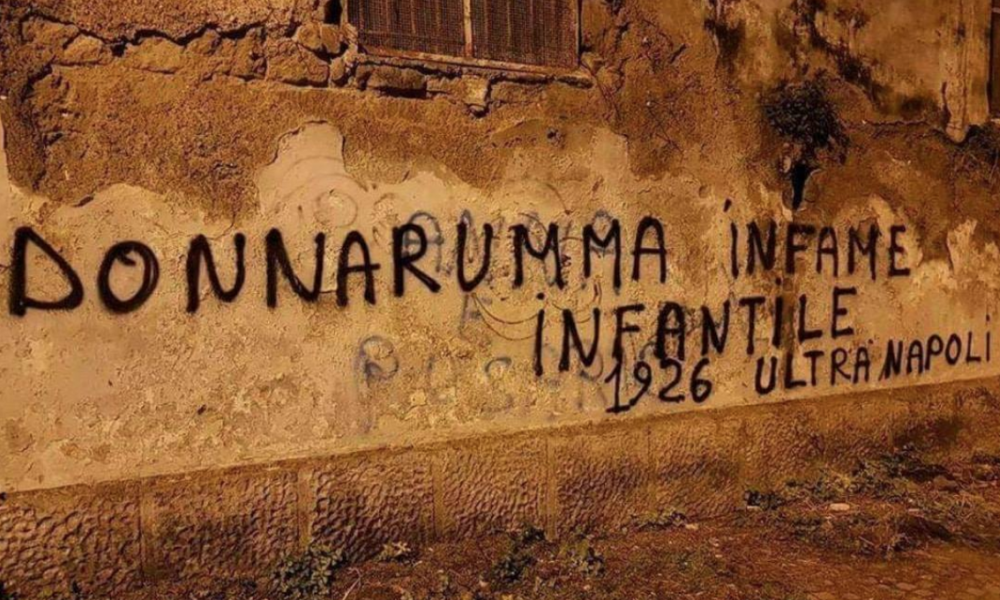 DONNARUMMA INFAME
INFANTILE
1926 ULTRA NAPOLI